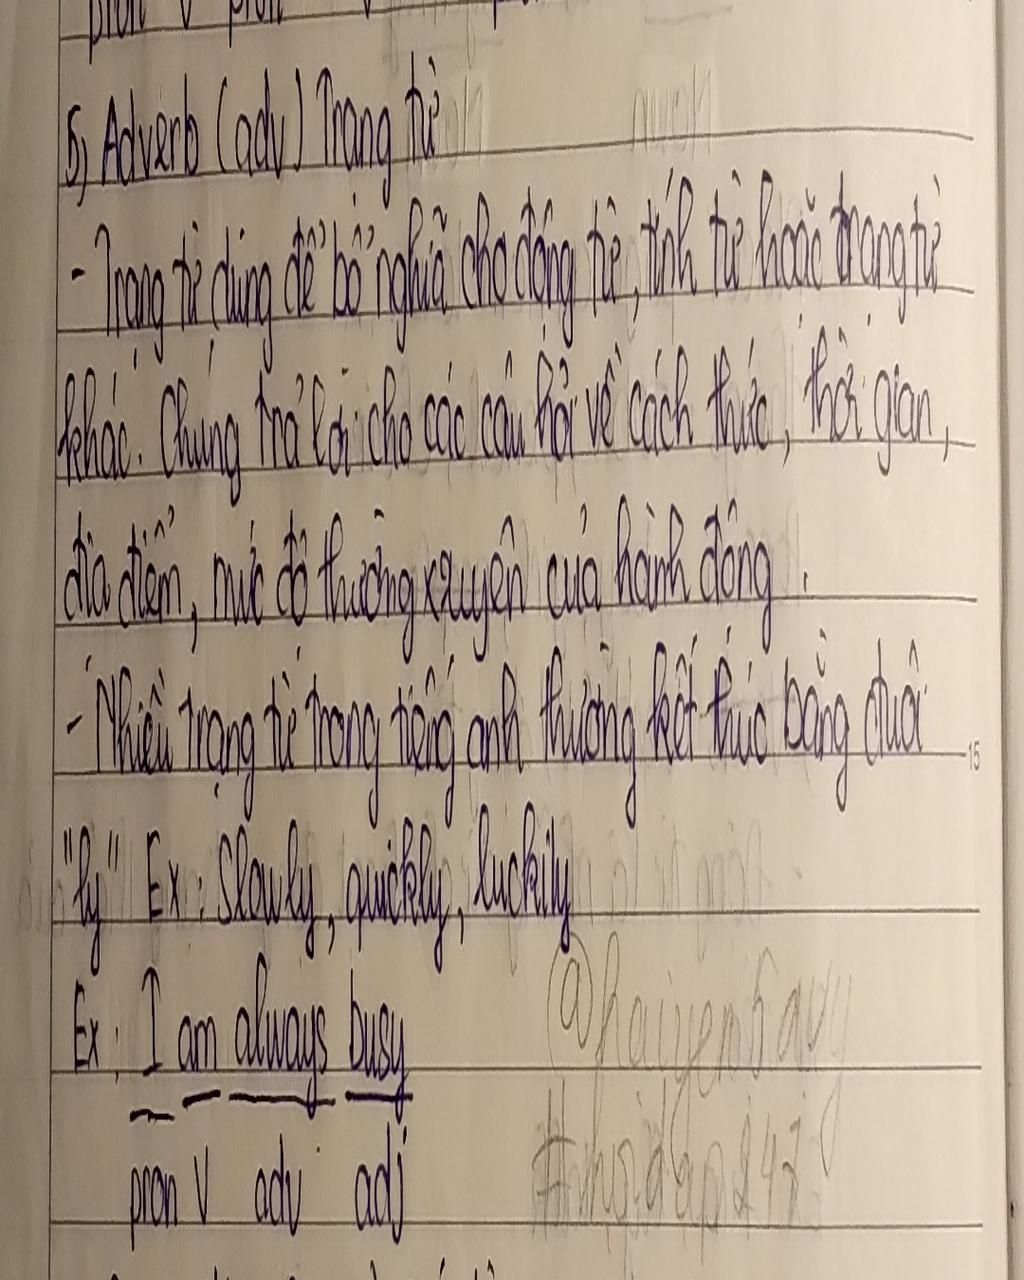 pron V pron V
5) Adverb (adv) Trạng từ
- Trạng từ dùng để bổ nghĩa cho động từ, tính từ hoặc trạng từ
khác. Chúng trả lời cho các câu hỏi về cách thức, thời gian,
địa điểm, mức độ thường xuyên của hành động.
- Nhiều trạng từ trong tiếng anh thường kết thúc bằng đuôi
15
"ly" Ex: Slowly, quickly, luckily
Ex: I am always busy
pron V adv adj